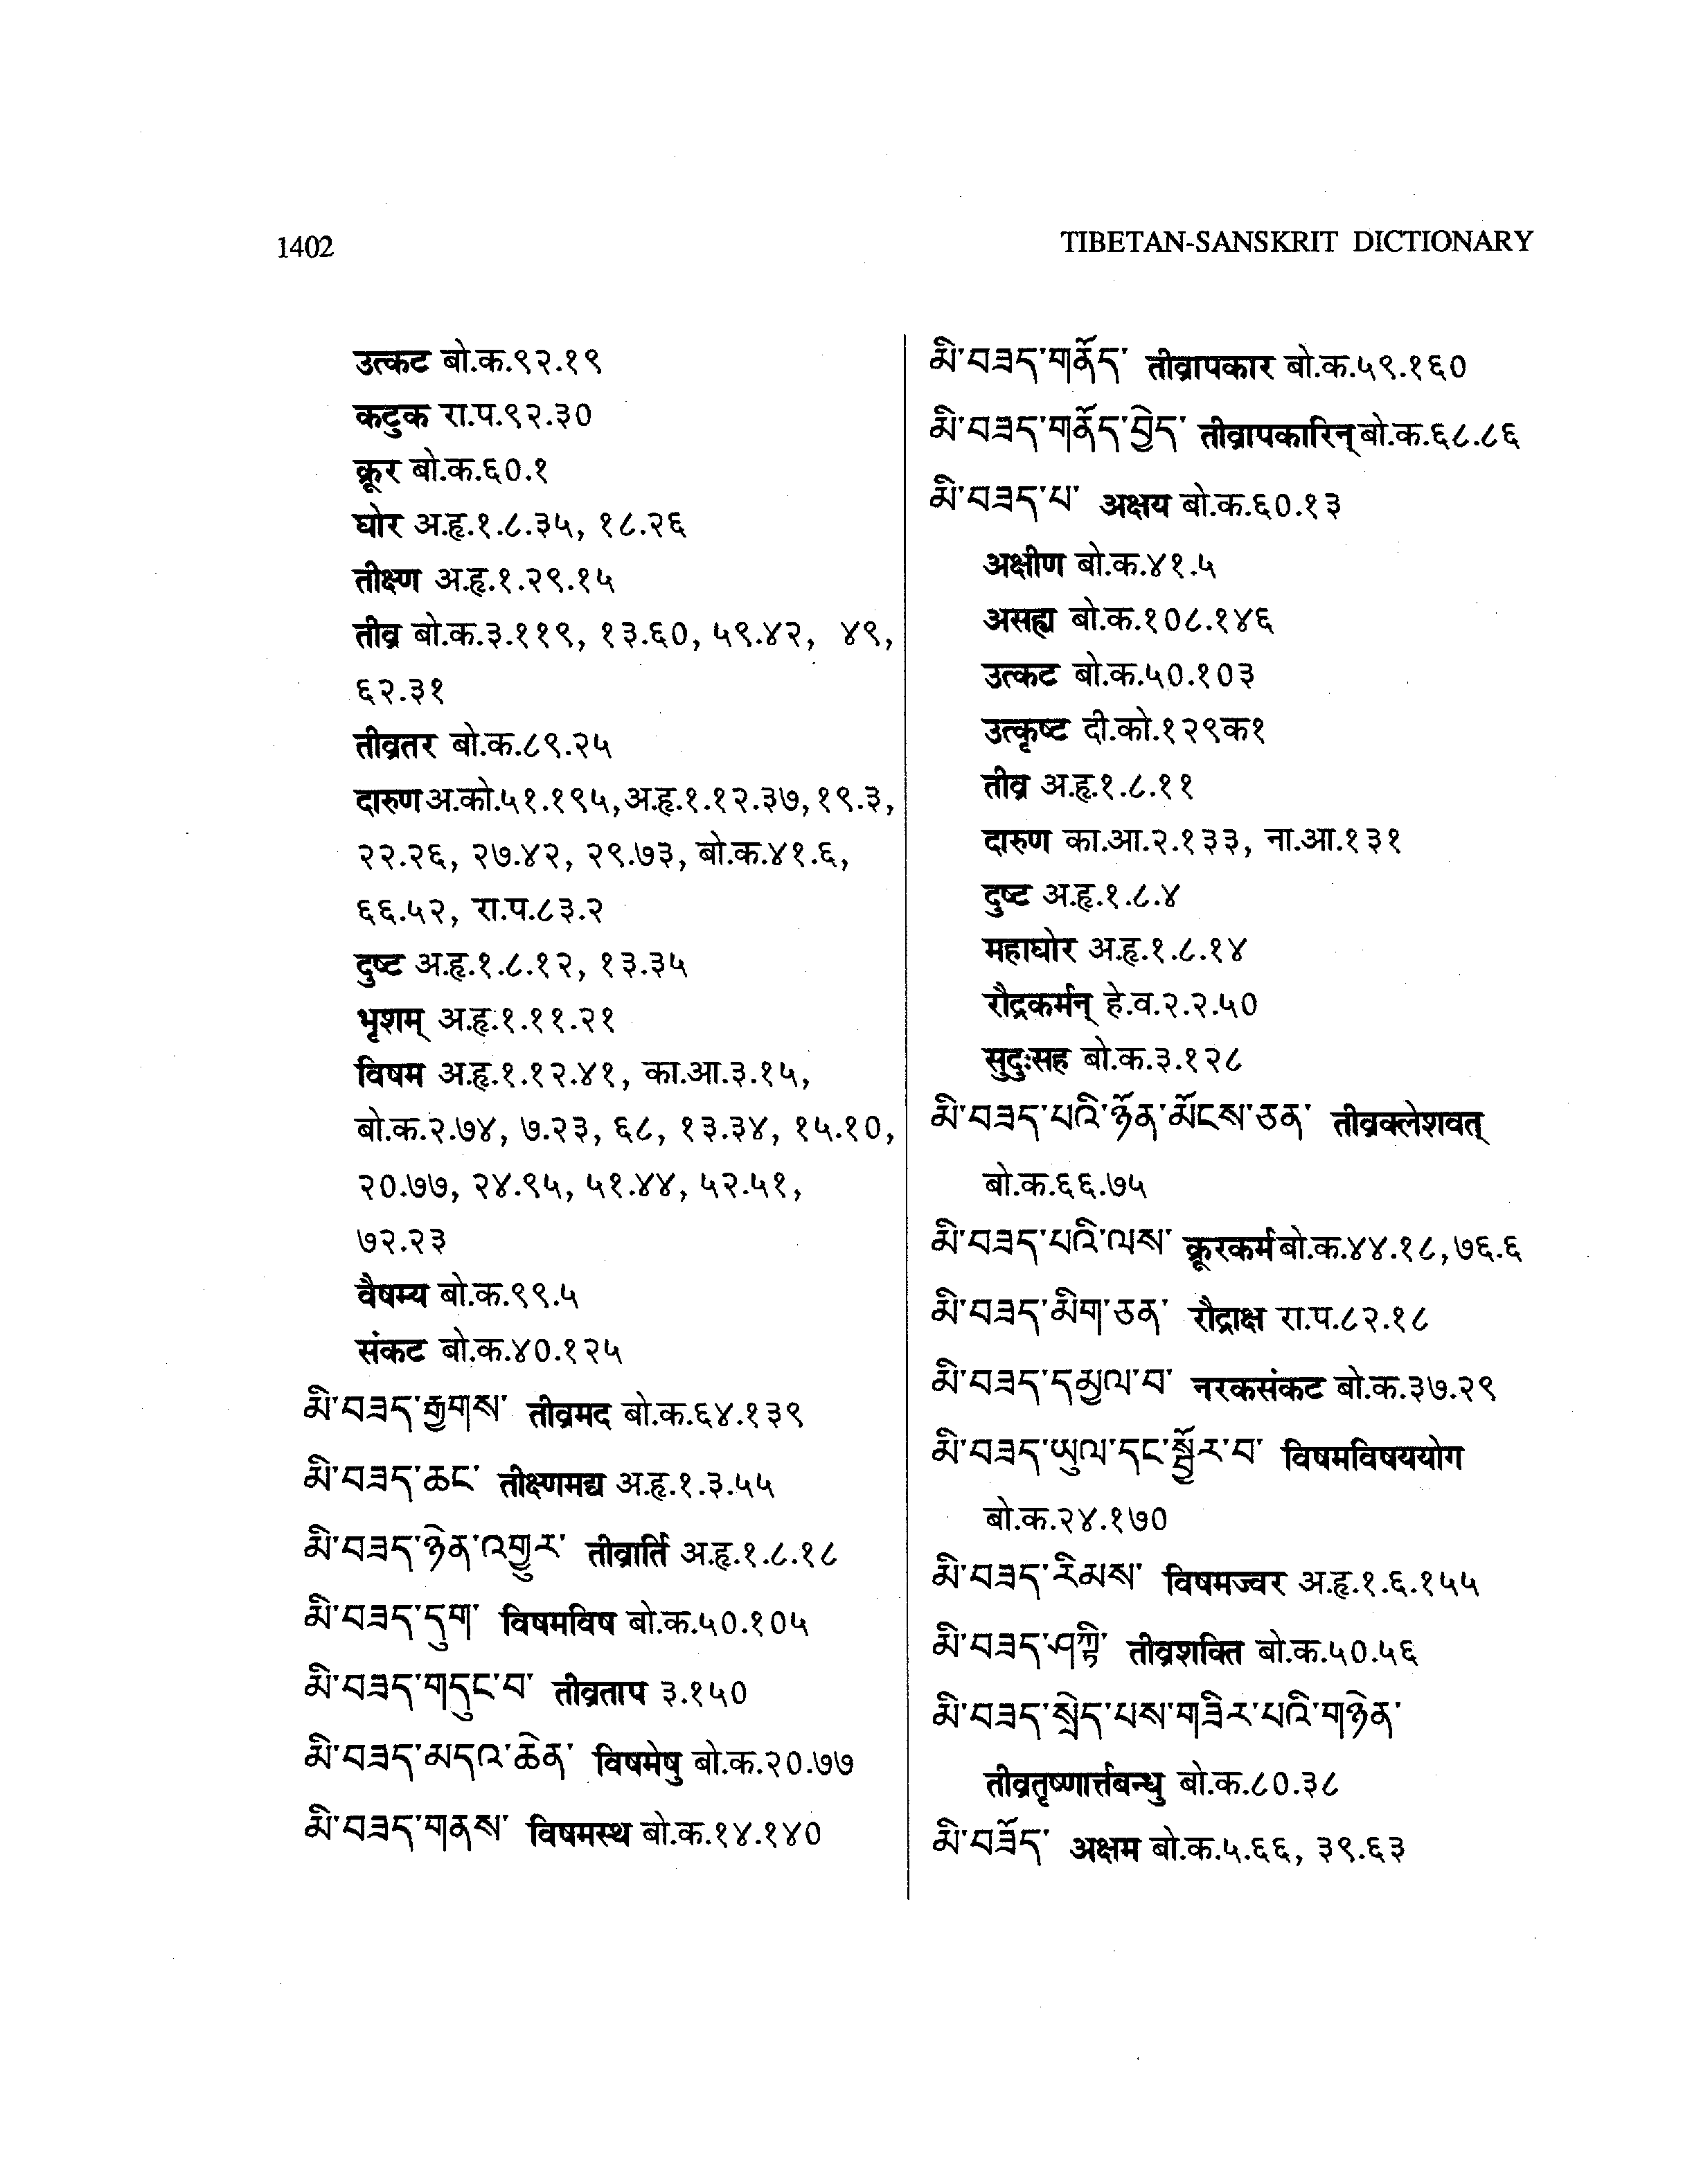 1402
TIBETAN-SANSKRIT DICTIONARY
उत्कट बो.क.९२.१९
कटुक रा.प.९२.३०
क्रूर बो.क.६०.१
घोर अ.हृ.१.८.३५, १८.२६
तीक्ष्ण अ.हृ.१.२९.१५
तीव्र बो.क.३.११९, १३.६०, ५९.४२, ४९,
६२.३१
तीव्रतर बो.क.८९.२५
दारुण अ.को.५१.१९५, अ.हृ.१.१२.३७, १९.३,
२२.२६, २७.४२, २९.७३, बो.क.४१.६,
६६.५२, रा.प.८३.२
दुष्ट अ.हृ.१.८.१२, १३.३५
भृशम् अ.हृ.१.११.२१
विषम अ.हृ.१.१२.४१, का.आ.३.१५,
बो.क.२.७४, ७.२३, ६८, १३.३४, १५.१०,
२०.७७, २४.९५, ५१.४४, ५२.५१,
७२.२३
वैषम्य बो.क.९९.५
संकट बो.क.४०.१२५
མི་བཟད་རྒྱགས་ तीव्रमद बो.क.६४.१३९
མི་བཟད་ཆང་ तीक्ष्णमद्य अ.हृ.१.३.५५
མི་བཟད་ཉེན་འགྱུར་ तीव्रार्ति अ.हृ.१.८.१८
མི་བཟད་དུག་ विषमविष बो.क.५०.१०५
མི་བཟད་གདུང་བ་ तीव्रताप ३.१५०
མི་བཟད་མདའ་ཆེན་ विषमेषु बो.क.२०.७७
མི་བཟད་གནས་ विषमस्थ बो.क.१४.१४०
མི་བཟད་གནོད་ तीव्रापकार बो.क.५९.१६०
མི་བཟད་གནོད་བྱེད་ तीव्रापकारिन् बो.क.६८.८६
མི་བཟད་པ་ अक्षय बो.क.६०.१३
अक्षीण बो.क.४१.५
असह्य बो.क.१०८.१४६
उत्कट बो.क.५०.१०३
उत्कृष्ट दी.को.१२९क१
तीव्र अ.हृ.१.८.११
दारुण का.आ.२.१३३, ना.आ.१३१
दुष्ट अ.हृ.१.८.४
महाघोर अ.हृ.१.८.१४
रौद्रकर्मन् हे.व.२.२.५०
सुदुःसह बो.क.३.१२८
མི་བཟད་པའི་ཉོན་མོངས་ཅན་ तीव्रक्लेशवत्
बो.क.६६.७५
མི་བཟད་པའི་ལས་ क्रूरकर्म बो.क.४४.१८, ७६.६
མི་བཟད་མིག་ཅན་ रौद्राक्ष रा.प.८२.१८
མི་བཟད་དམྱལ་བ་ नरकसंकट बो.क.३७.२९
མི་བཟད་ཡུལ་དང་སྦྱོར་བ་ विषमविषययोग
बो.क.२४.१७०
མི་བཟད་རིམས་ विषमज्वर अ.हृ.१.६.१५५
མི་བཟད་ཤཀྟི་ तीव्रशक्ति बो.क.५०.५६
མི་བཟད་སྲེད་པས་གཟིར་པའི་གཉེན་
तीव्रतृष्णार्त्तबन्धु बो.क.८०.३८
མི་བཟོད་ अक्षम बो.क.५.६६, ३९.६३